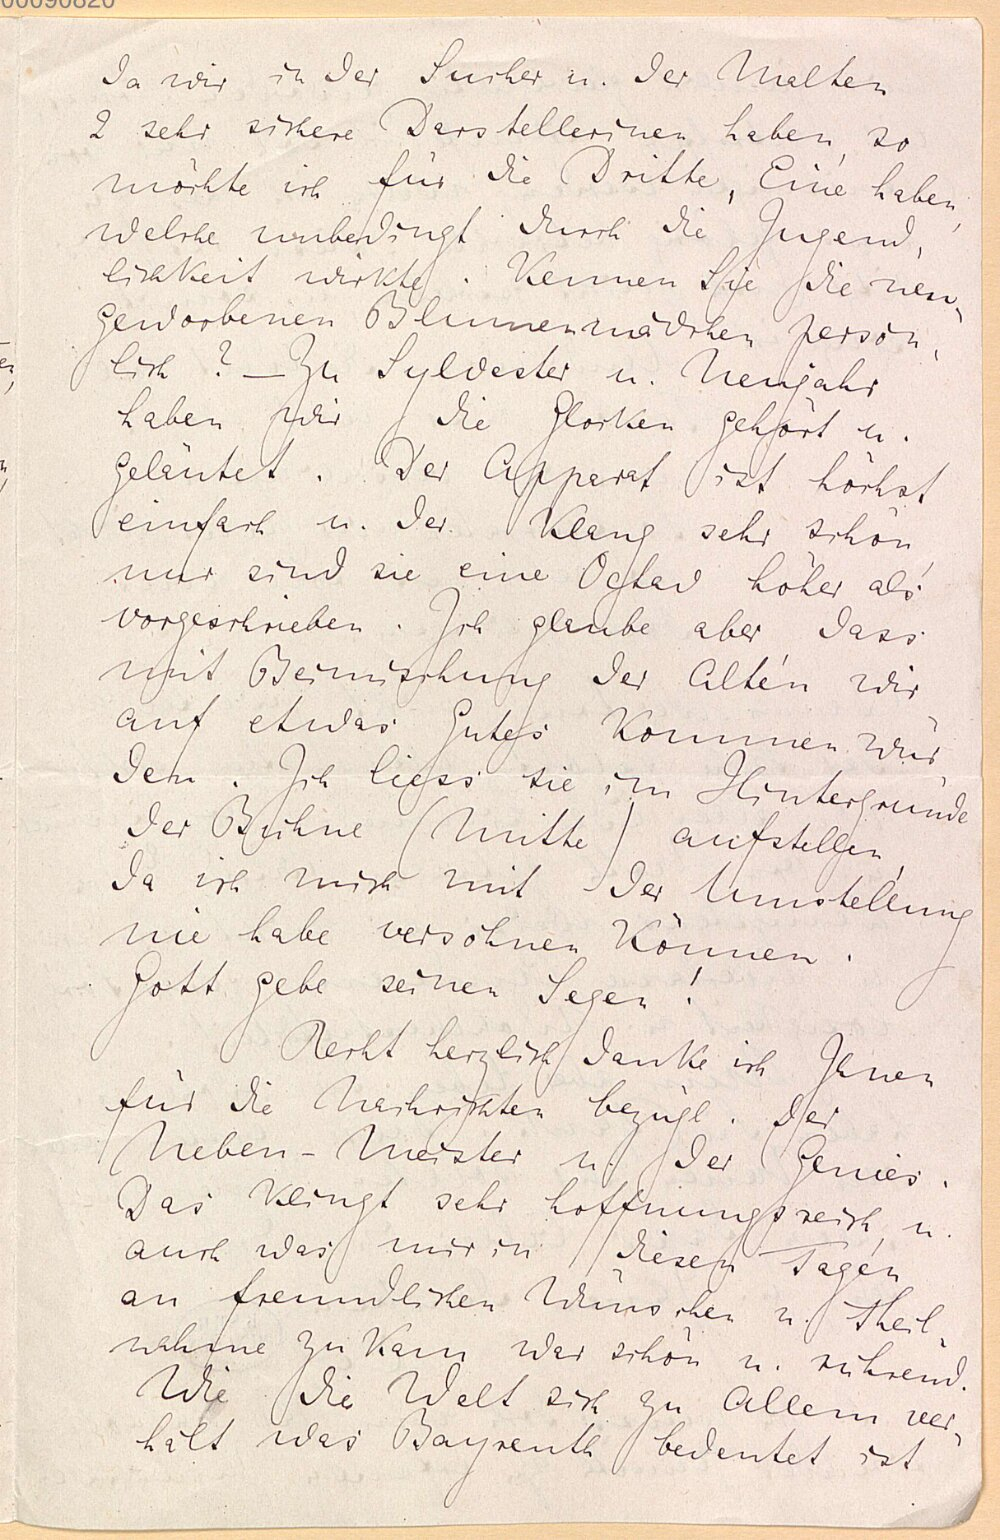 00090820
Da wir in der Sucher u. der Malten
2 sehr sichere Darstellerinen haben, so
möchte ich für die Dritte, Eine haben,
welche unbedingt durch die Jugend,
lichkeit wirkte. Kennen Sie die neu,
geworbenen Blumenmädchen person,
lich? — Zu Sylvester u. Neujahr
haben wir die Glocken gehört u.
geläutet. Der Apparat ist höchst
einfach u. der Klang sehr schön,
nur sind sie eine Octav höher als
vorgeschrieben. Ich glaube aber dass
mit Beimischung der Alten wir
auf etwas Gutes kommen wür,
den. Ich liess sie im Hintergrunde
der Bühne (Mitte) aufstellen,
da ich mich mit der Umstellung
nie habe versöhnen können.
Gott gebe seinen Segen!
Recht herzlich danke ich Ihnen
für die Nachrichten bezügl. der
Neben-Meister u. der Genies.
Das klingt sehr hoffnungsreich, u.
auch was mir in diesen Tagen
an freundlichen Wünschen u. Theil,
nahme zu kam war schön u. rührend.
Wie die Welt sich zu Allem ver,
hält was Bayreuth bedeutet ist